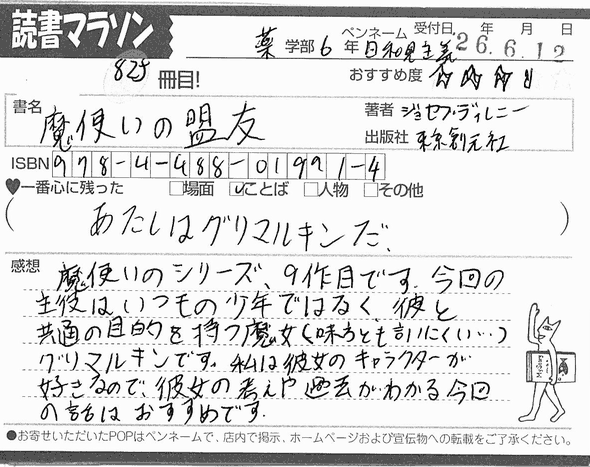 読書マラソン
薬 学部 6 年 ペンネーム 日和見主義 受付日 26 年 6 月 12 日
825 冊目!
おすすめ度 ☆☆☆
書名 魔使いの盟友
著者 ジョセフ・ディレニー
出版社 東京創元社
ISBN 978-4-488-01991-4
♥一番心に残った □場面 ☑ことば □人物 □その他
( あたしはグリマルキンだ、 )
感想 魔使いのシリーズ、9作目です。今回の
主役はいつもの少年ではなく、彼と
共通の目的を持つ魔女(味方とも言いにくい…)
グリマルキンです。私は彼女のキャラクターが
好きなので、彼女の考えや過去がわかる今回
の話はおすすめです。
●お寄せいただいたPOPはペンネームで、店内で掲示、ホームページおよび宣伝物への転載をご了承ください。